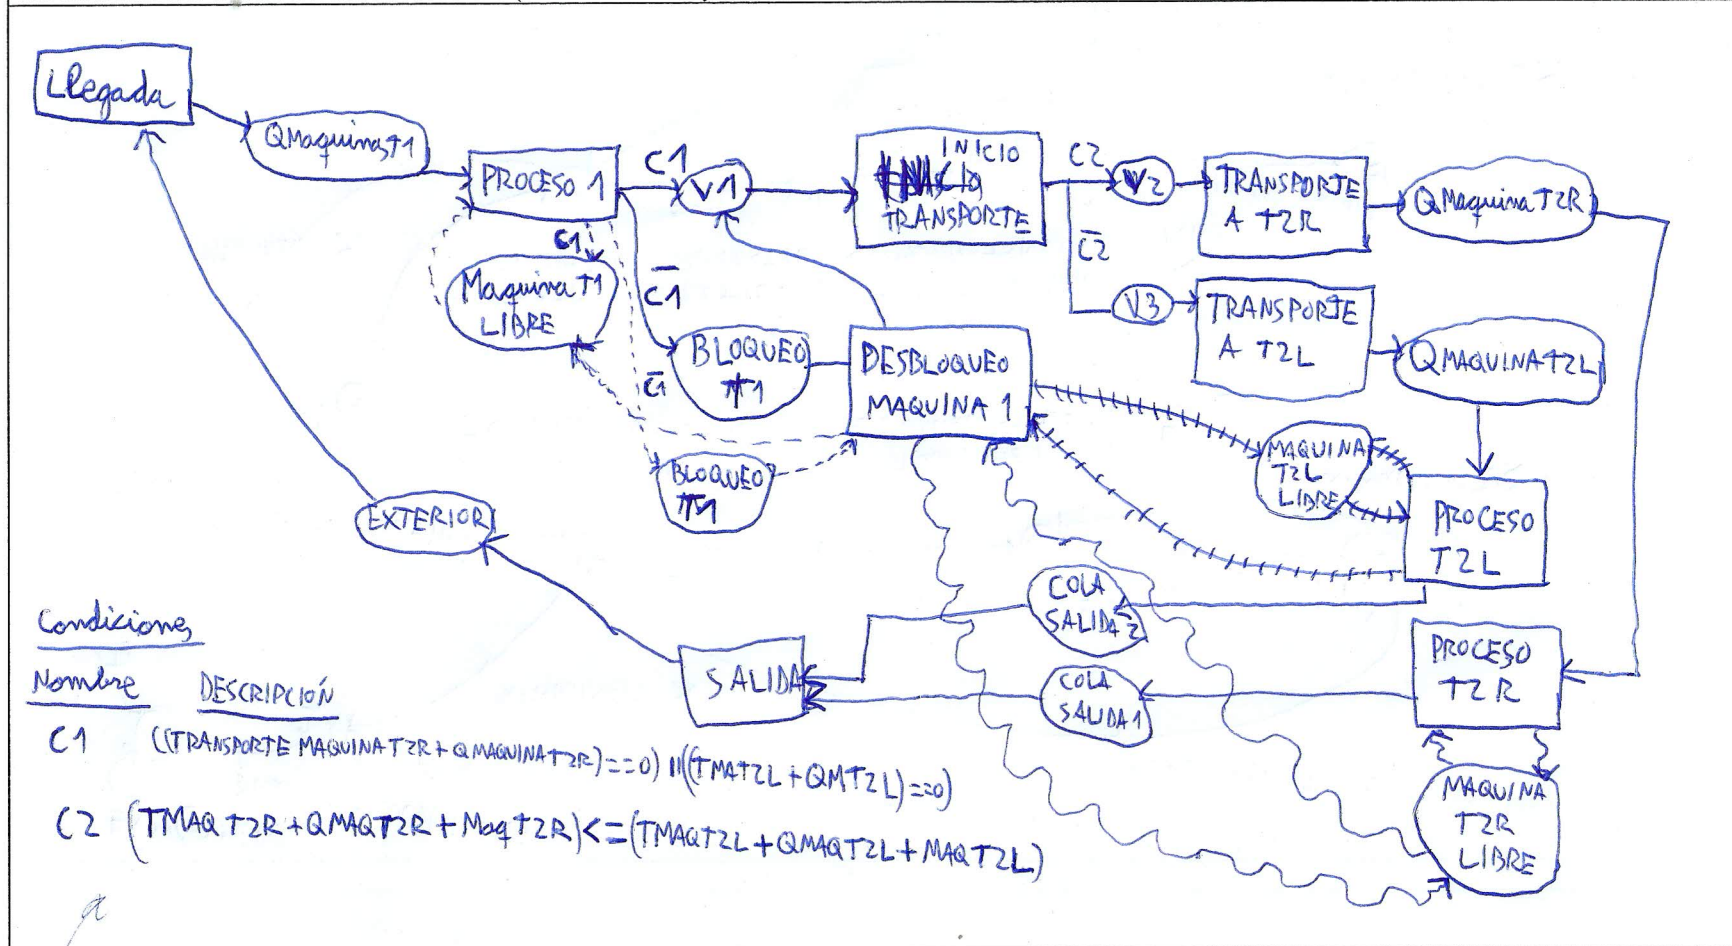 Llegada
QMaquinaT1
PROCESO 1
C1
V1
INICIO
TRANSPORTE
C2
V2
TRANSPORTE
A T2R
QMaquinaT2R
C1
C̅1̅
C̅2̅
Maquina T1
LIBRE
V3
TRANSPORTE
A T2L
QMAQUINAT2L
BLOQUEO
T1
C̅1̅
DESBLOQUEO
MAQUINA 1
BLOQUEO
T1
MAQUINA
T2L
LIBRE
PROCESO
T2L
EXTERIOR
COLA
SALIDA 2
PROCESO
T2R
SALIDA
COLA
SALIDA 1
MAQUINA
T2R
LIBRE
Condiciones
Nombre DESCRIPCIÓN
C1 ((TRANSPORTE MAQUINAT2R+QMAQUINAT2R)==0) ||((TMAT2L+QMT2L)==0)
C2 (TMAQT2R+QMAQT2R+MaqT2R)<=(TMAQT2L+QMAQT2L+MAQT2L)